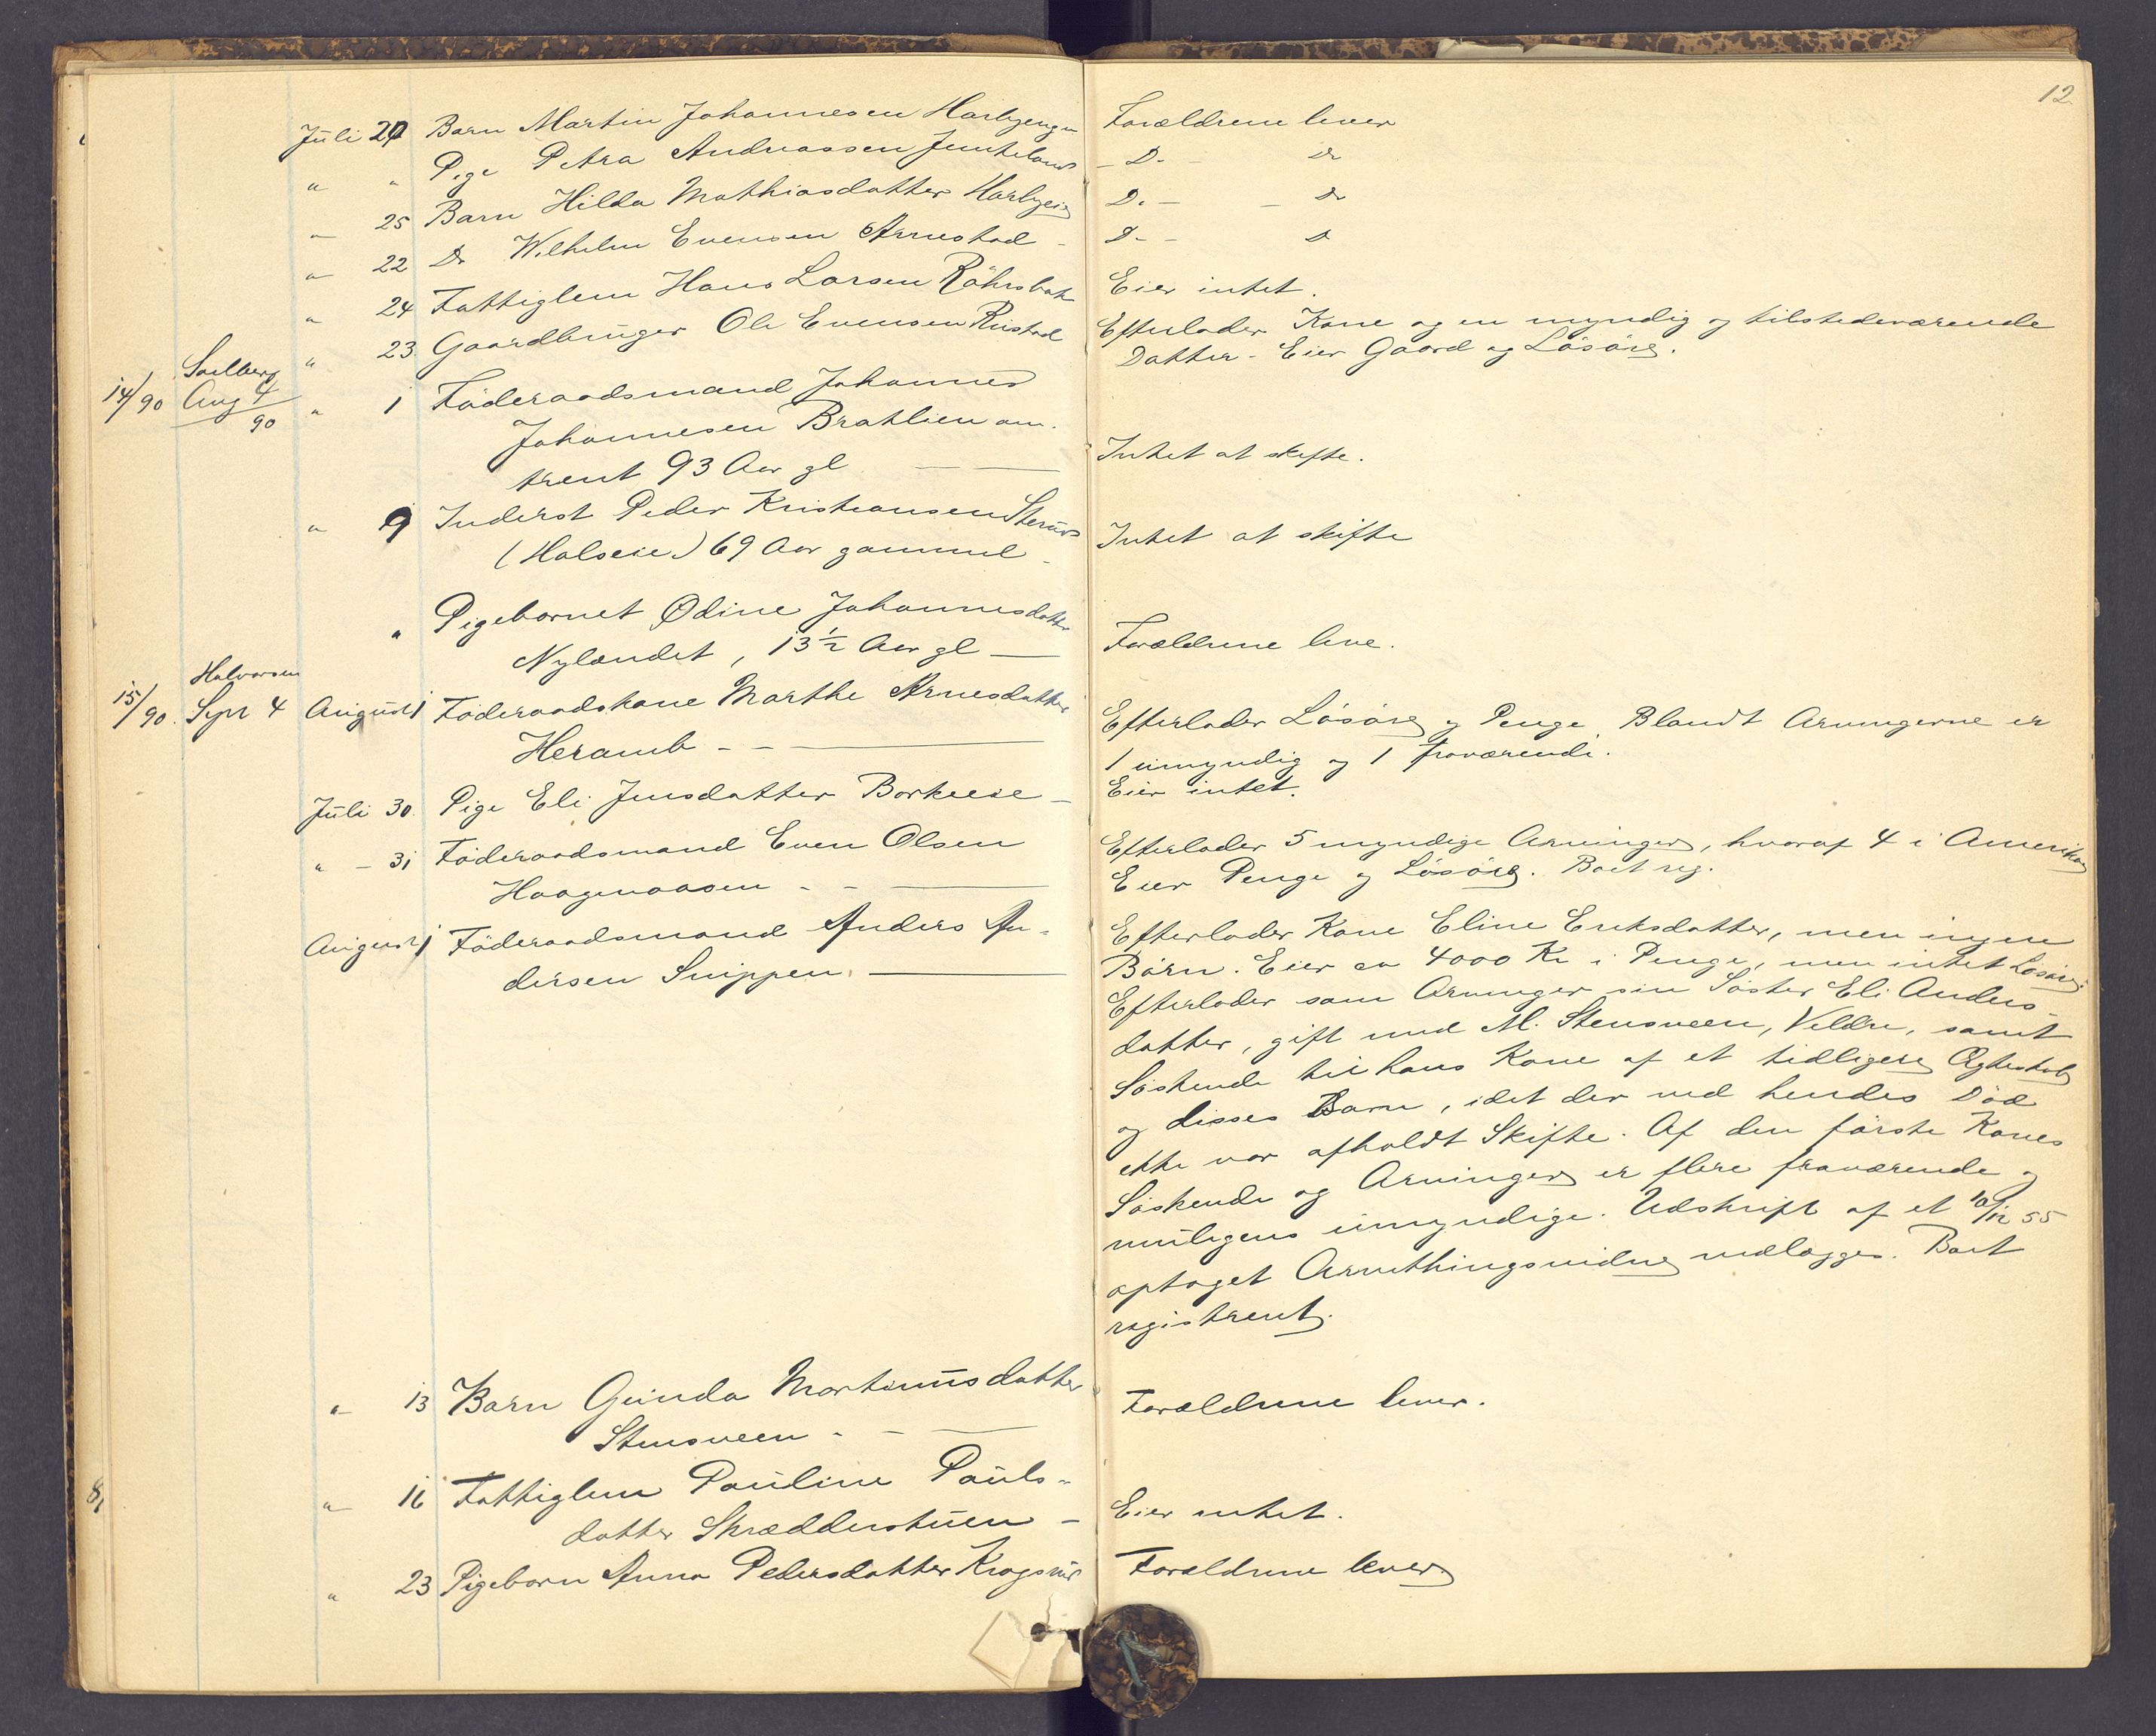 12.
Juli 27 Barn Martin Johannesen Harbyengen Forældrene lever
" " Pige Petra Andreassen - Do - Do
" 25 Barn Hilda Mathiasdatter Harbyeie Do - - Do
" 22 Do Wilhelm Evensen Arnestad - Do - - Do
" 24 Fattiglem Hans Larsen Röhrsbak Eier intet.
" 23 Gaardbruger Ole Evensen Ristad Efterlader Kone og en myndig og tilstedeværende
Datter - Eier Gaard og Lösöre.
14/90 Solberg
Aug 4/90 " 1 Föderaadsmand Johannes
Johannesen Bratlien om-
trent 93 Aar gl Intet at skifte.
" 9 Inderst Peder Kristiansen
(Halseie) 69 Aar gammel - Intet at skifte
" Pigebarnet Ødine Johannesdatter
Nylændet, 13½ Aar gl — Forældrene leve.
15/90. Halvorsen
Sept 4 August 1 Föderaadskone Marthe Arnesdatter Efterlader Lösöre og Penge. Blandt Arvingerne er
Heramb - - — 1 umyndig og 1 fraværende.
Juli 30. Pige Eli Jensdatter Borkeeie - Eier intet.
" - 31 Föderaadsmand Even Olsen Efterlader 5 myndige Arvinger, hvoraf 4 i Amerika
Haagenaasen - - — Eier Penge og Lösöre. Boet reg.
August 1 Föderaadsmand Anders An- Efterlader Kone Eline Eriksdatter, men ingen
dersen Snippen. — Börn. Eier ca 4000 Kr i Penge, men intet Lösöre.
Efterlader som Arvinger sin Söster Eli Anders-
datter, gift med M. Stensveen, Veldre, samt
Söskende til hans Kone af et tidligere Ægteskab
og disses Barn, idet der ved hendes Död
ikke var afholdt Skifte. Af den förste Kones
Söskende og Arvinger er flere fraværende og
muligens umyndige. Udskrift af et 10/12 55
optaget Arvethingsvidne vedlægges. Boet
registreret.
" 13 Barn Gunda Martinusdatter Forældrene lever.
Stensveen - - —
" 16 Fattiglem Pauline Pauls-
datter Skrædderstuen - Eier intet.
" 23 Pigebarn Anna Pedersdatter Forældrene lever